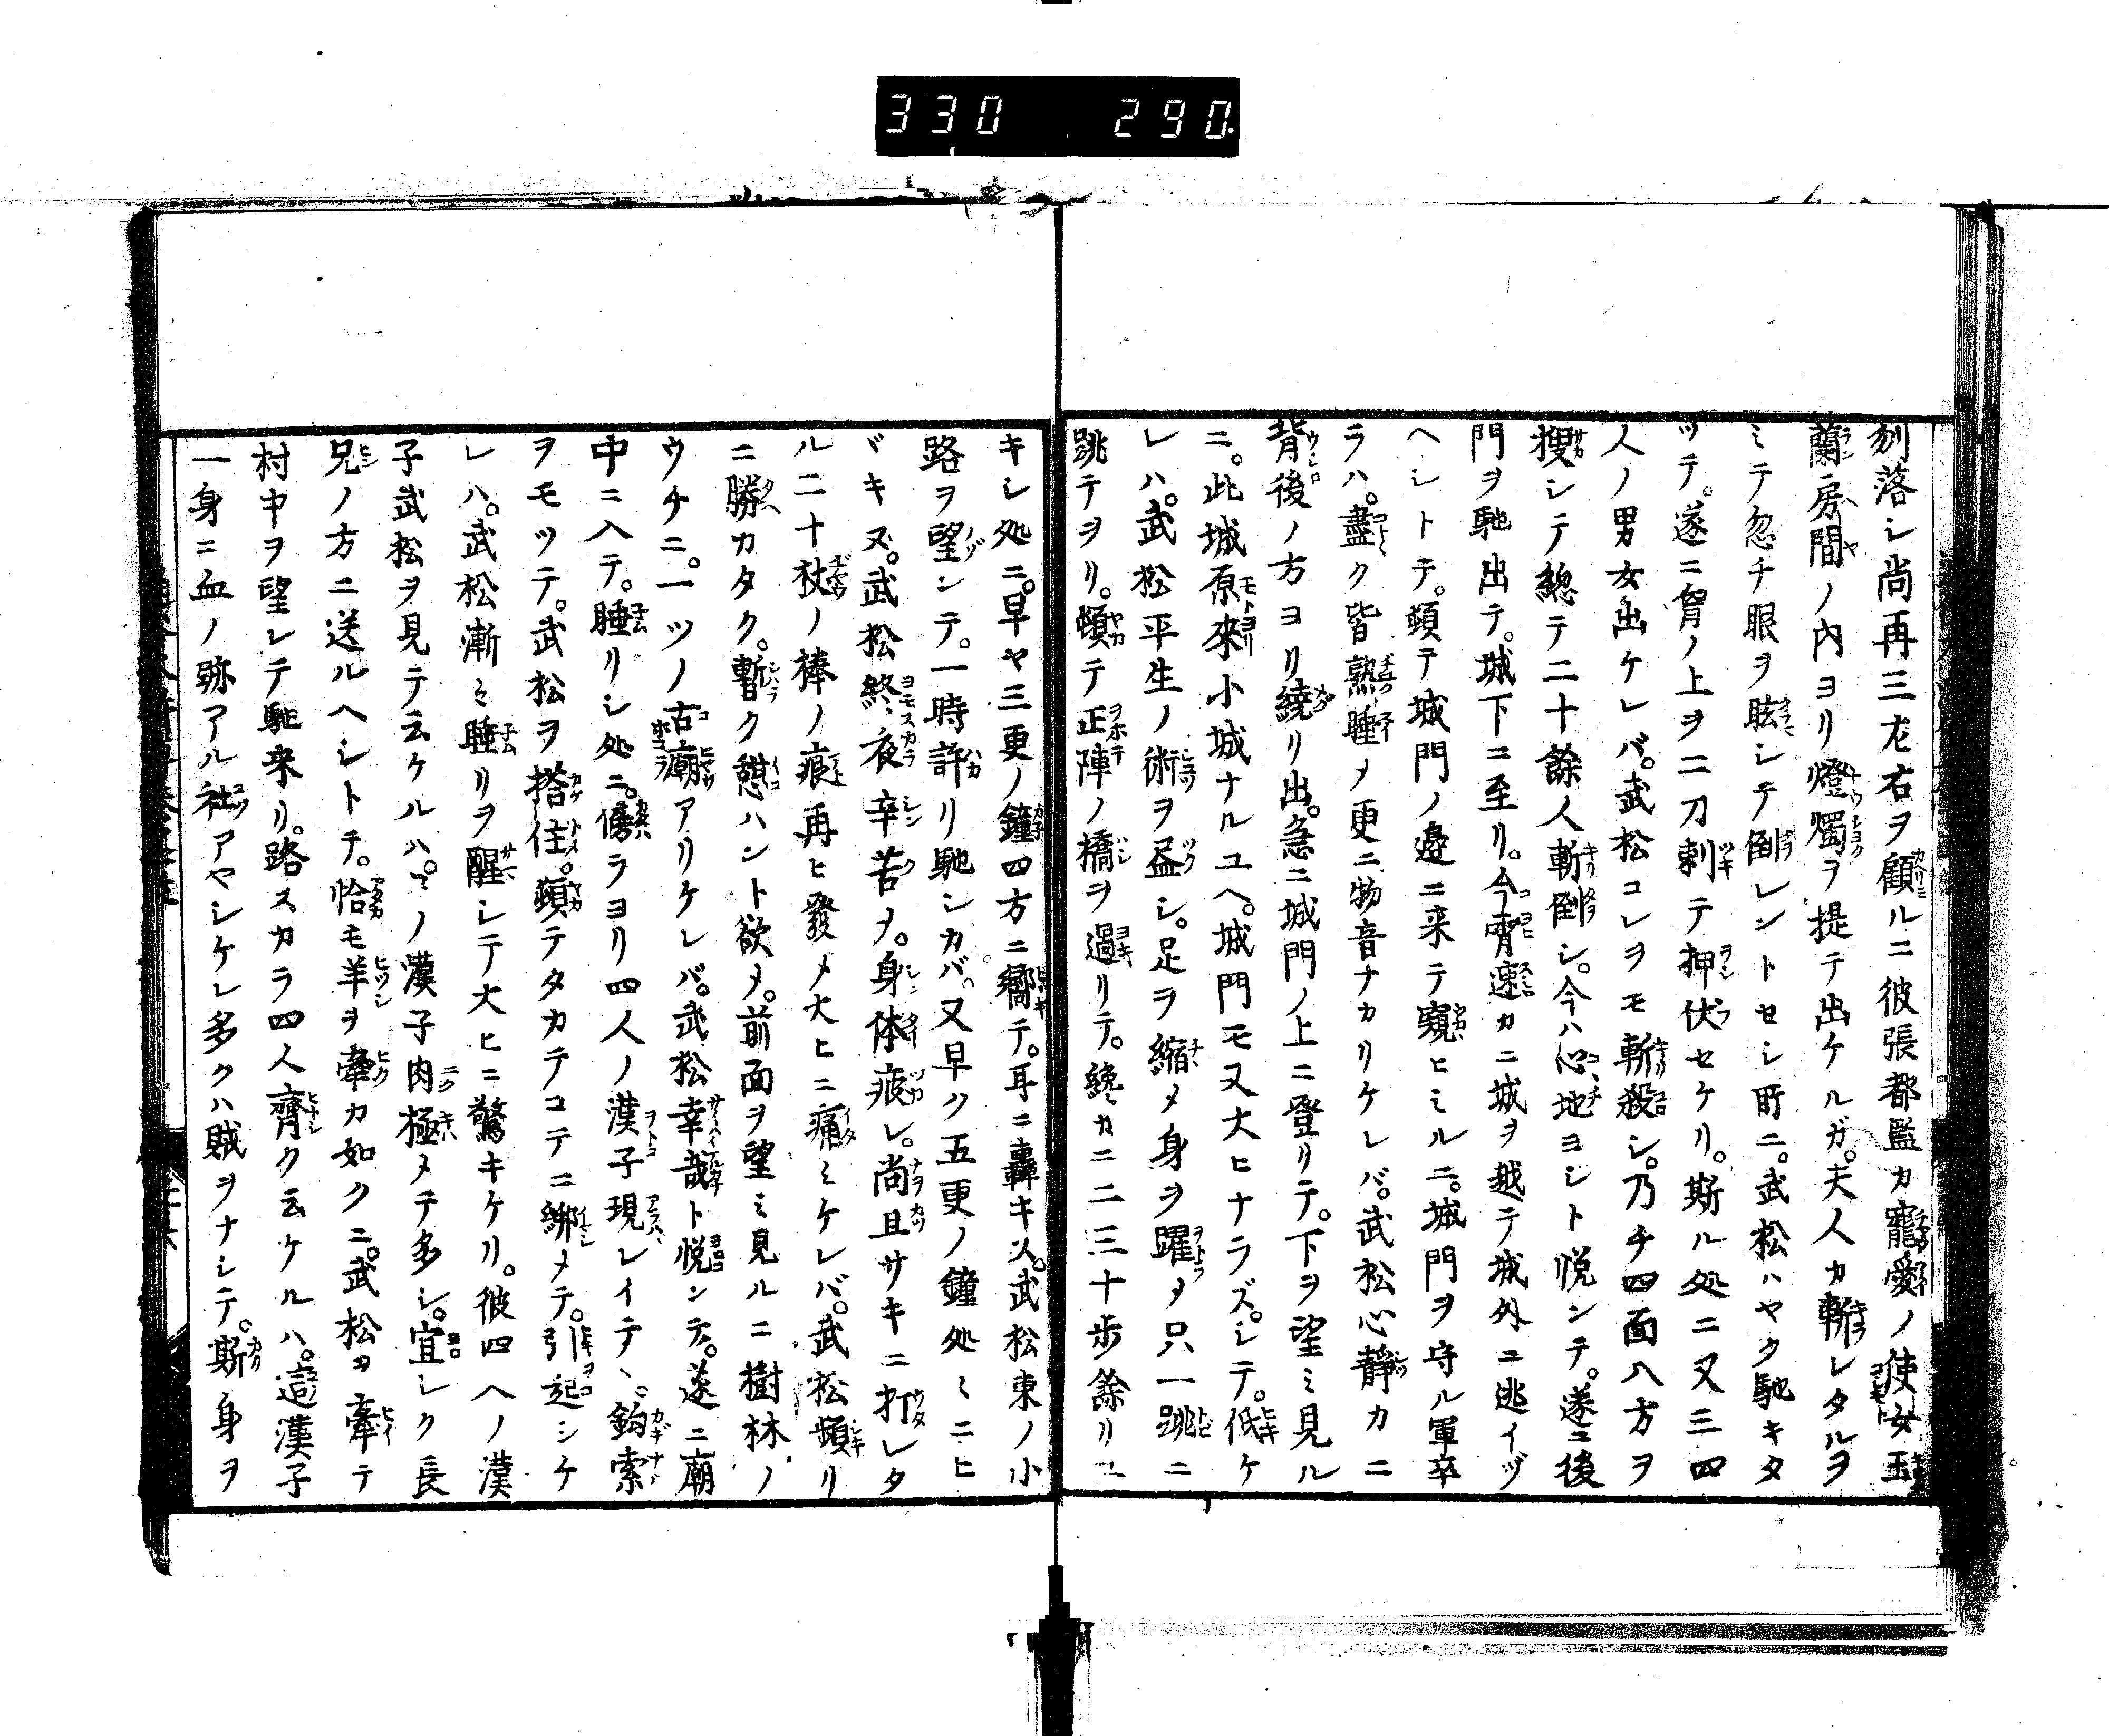 330 290
刎落シ尚再三左右ヲ顧ルニ彼張都監カ寵愛ノ使女玉
蘭房間ノ内ヨリ燈燭ヲ提テ出ケルガ。夫人カ斬レタルヲ
ミテ忽チ眼ヲ眩シテ倒レントセシ所ニ。武松ハヤク馳キタ
ツテ。遂ニ胷ノ上ヲ二刀刺テ押伏セケリ。斯ル処ニ又三四
人ノ男女出ケレバ。武松コレヲモ斬殺シ。乃チ四面八方ヲ
搜シテ總テ二十餘人斬倒シ。今ハ心地ヨシト悦ンテ。遂ニ後
門ヲ馳出テ。城下ニ至リ。今宵速カニ城ヲ越テ城外ニ逃イヅ
ヘシトテ。頓テ城門ノ邉ニ来テ窺ヒミルニ。城門ヲ守ル軍卒
ラハ。盡ク皆熟睡メ更ニ物音ナカリケレバ。武松心靜カニ
背後ノ方ヨリ繞リ出。急ニ城門ノ上ニ登リテ。下ヲ望ミ見ル
ニ。此城原來小城ナルユヘ。城門モ又大ヒナラズ。シテ。低ケ
レハ。武松平生ノ術ヲ盡シ。足ヲ縮メ身ヲ躍メ只一跳ニ
跳テヲリ。頓テ正陣ノ橋ヲ過リテ。纔カニ二三十歩餘リユ
キシ処ニ。早ヤ三更ノ鐘四方ニ響テ。耳ニ轟キ又。武松東ノ小
路ヲ望ンテ。一時許リ馳シカバ。又早ク五更ノ鐘処〻ニヒ
ビキヌ。武松終夜辛苦メ。身体疲レ。尚且サキニ打レタ
ル二十杖ノ棒ノ痕再ヒ發メ大ヒニ痛ミケレバ。武松頻リ
ニ勝カタク。暫ク憩ハント欲メ。前面ヲ望ミ見ルニ樹林ノ
ウチニ。一ツノ古廟アリケレバ。武松幸哉ト悦ンテ。遂ニ廟
中ニ入テ。睡リシ処ニ。傍ラヨリ四人ノ漢子現レイテヽ。鈎索
ヲモツテ。武松ヲ搭住。頓テタカテコテニ綁メテ。引起シケ
レハ。武松漸〻睡リヲ醒シテ大ヒニ驚キケリ。彼四人ノ漢
子武松ヲ見テ云ケルハ。コノ漢子肉極メテ多シ。宜シク長
兄ノ方ニ送ルヘシトテ。恰モ羊ヲ牽カ如クニ。武松ヲ牽テ
村中ヲ望レテ馳来リ。路スカラ四人齊ク云ケルハ。這漢子
一身ニ血ノ跡アル社アヤシケレ多クハ賊ヲナシテ。斯身ヲ